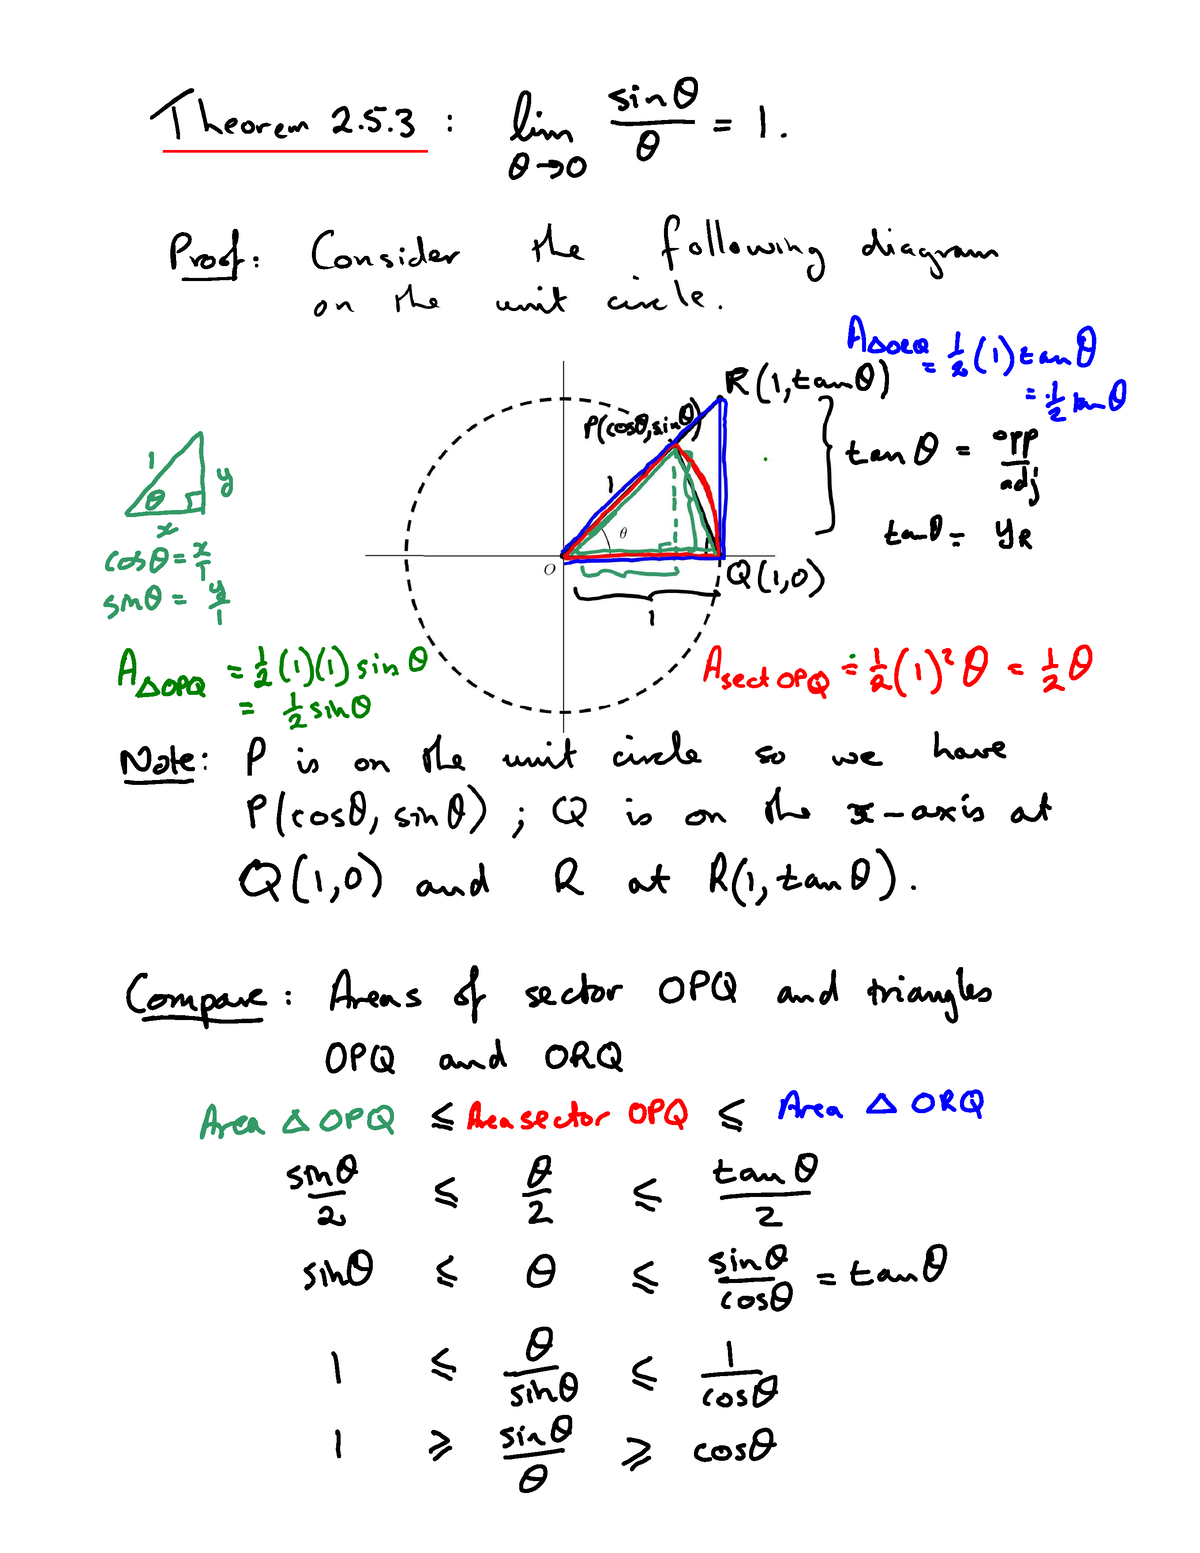 Theorem 2.5.3 : lim θ→0 sinθ/θ = 1.
Proof: Consider the following diagram
on the unit circle.
A△ORQ = 1/2 (1) tanθ
= 1/2 tanθ
R(1,tanθ)
P(cosθ,sinθ)
tanθ = opp/adj
tanθ = yR
1
y
θ
x
cosθ = x/1
sinθ = y/1
1
θ
O
Q(1,0)
1
A△OPQ = 1/2 (1)(1) sinθ
= 1/2 sinθ
Asect OPQ = 1/2 (1)² θ = 1/2 θ
Note: P is on the unit circle so we have
P(cosθ, sinθ) ; Q is on the x-axis at
Q(1,0) and R at R(1,tanθ).
Compare: Areas of sector OPQ and triangles
OPQ and ORQ
Area △ OPQ ≤ Area sector OPQ ≤ Area △ ORQ
sinθ/2 ≤ θ/2 ≤ tanθ/2
sinθ ≤ θ ≤ sinθ/cosθ = tanθ
1 ≤ θ/sinθ ≤ 1/cosθ
1 ≥ sinθ/θ ≥ cosθ